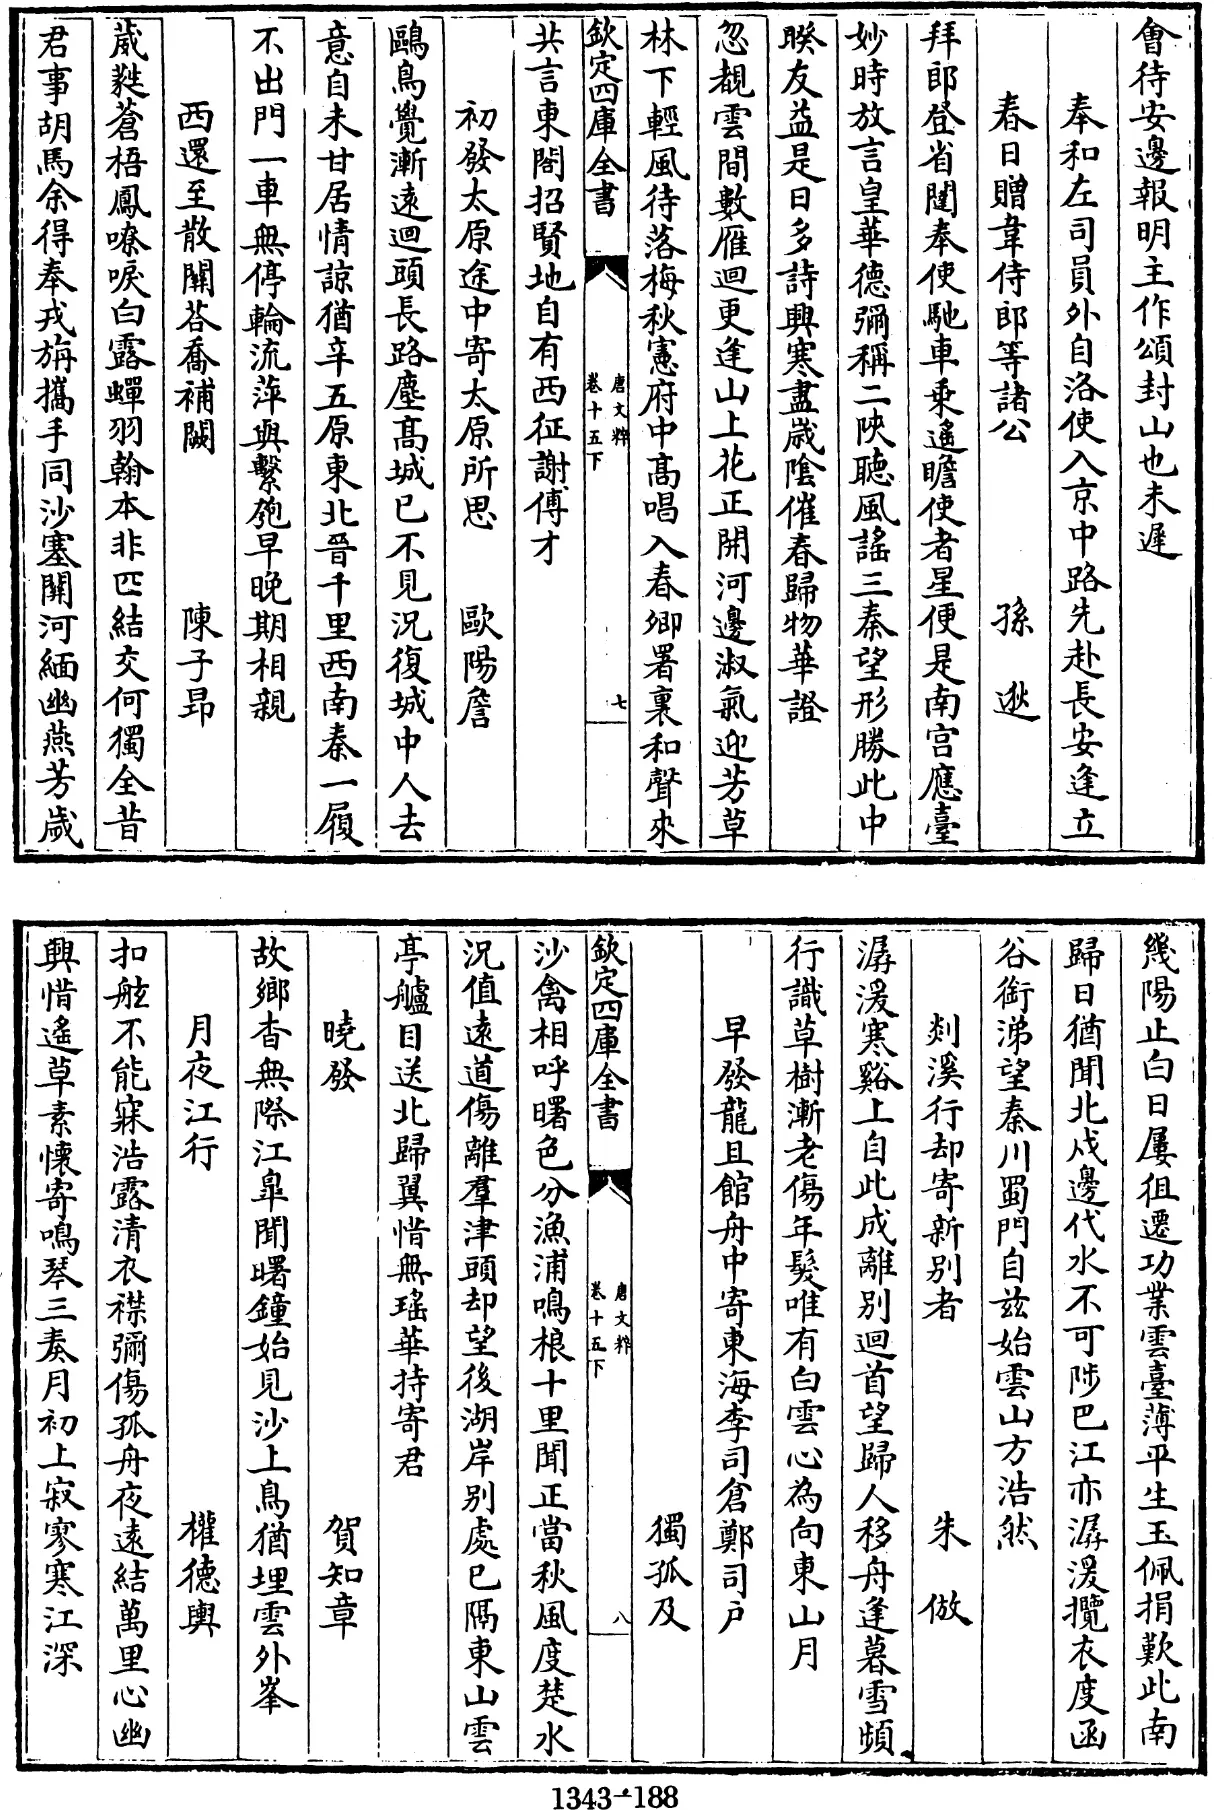 會待安邊報明主作頌封山也未遲
奉和左司員外自洛使入京中路先赴長安逢立
春日贈韋侍郎等諸公 孫逖
拜郎登省闥奉使馳車乘遙瞻使者星便是南宫應臺
妙時放言皇華德彌稱二陜聴風謠三秦望形勝此中
暌友益是日多詩興寒盡歲隂催春歸物華證
忽覩雲間數雁迴更逢山上花正開河邊淑氣迎芳草
林下輕風待落梅秋憲府中髙唱入春卿署裏和聲來
欽定四庫全書
唐文粹
卷十五下
七
共言東閤招賢地自有西征謝傅才
初發太原途中寄太原所思 歐陽詹
鷗鳥覺漸逺迴頭長路塵髙城已不見况復城中人去
意自未甘居情諒猶辛五原東北晉千里西南秦一履
不出門一車無停輪流萍與繫匏早晚期相親
西還至散闗荅喬補闕 陳子昻
葳蕤蒼梧鳳嘹唳白露蟬羽翰本非匹結交何獨全昔
君事胡馬余得奉戎旃攜手同沙塞闗河緬幽燕芳歲
幾陽止白日屢徂遷功業雲臺薄平生玉佩捐歎此南
歸日猶聞北戍邊代水不可陟巴江亦潺湲攬衣度函
谷銜涕望秦川蜀門自兹始雲山方浩然
剡溪行却寄新别者 朱倣
潺湲寒谿上自此成離别迴首望歸人移舟逢暮雪頻
行識草樹漸老傷年髮唯有白雲心為向東山月
早發龍且館舟中寄東海李司倉鄭司戸
獨孤及
欽定四庫全書
唐文粹
卷十五下
八
沙禽相呼曙色分漁浦鳴榔十里聞正當秋風度楚水
况值逺道傷離羣津頭却望後湖岸别處已隔東山雲
亭艫目送北歸翼惜無瑤華持寄君
曉發 賀知章
故鄉杳無際江臯聞曙鐘始見沙上鳥猶埋雲外峯
月夜江行 權德輿
扣舷不能寐浩露清衣襟彌傷孤舟夜逺結萬里心幽
興惜遙草素懷寄鳴琴三奏月初上寂寥寒江深
1343-188